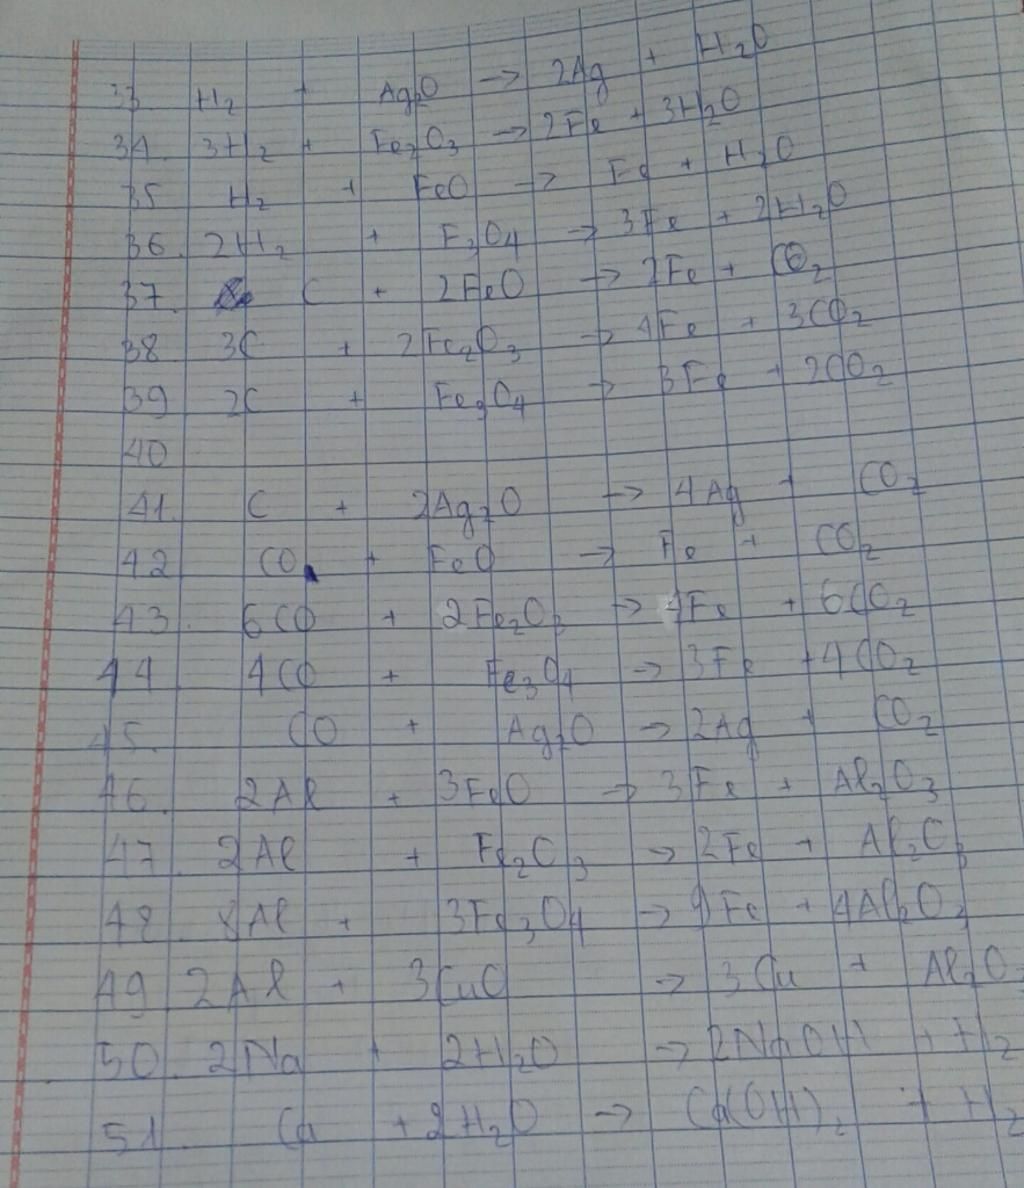 33 H₂ + Ag₂O → 2Ag + H₂O
34. 3H₂ + Fe₂O₃ → 2Fe + 3H₂O
35 H₂ + FeO → Fe + H₂O
36. 2H₂ + F₃O₄ → 3Fe + 2H₂O
37. C + 2FeO → 2Fe + CO₂
38 3C + 2Fe₂O₃ → 4Fe + 3CO₂
39 2C + Fe₃O₄ → 3Fe + 2CO₂
40
41. C + 2Ag₂O → 4Ag + CO₂
42 CO + FeO → Fe + CO₂
43. 6CO + 2Fe₂O₃ → 4Fe + 6CO₂
44 4CO + Fe₃O₄ → 3Fe + 4CO₂
45. CO + Ag₂O → 2Ag + CO₂
46. 2Al + 3FeO → 3Fe + Al₂O₃
47 2Al + Fe₂O₃ → 2Fe + Al₂O₃
48 8Al + 3Fe₃O₄ → 9Fe + 4Al₂O₃
49 2Al + 3CuO → 3Cu + Al₂O
50. 2Na + 2H₂O → 2NaOH + H₂
51. Ca + 2H₂O → Ca(OH)₂ + H₂